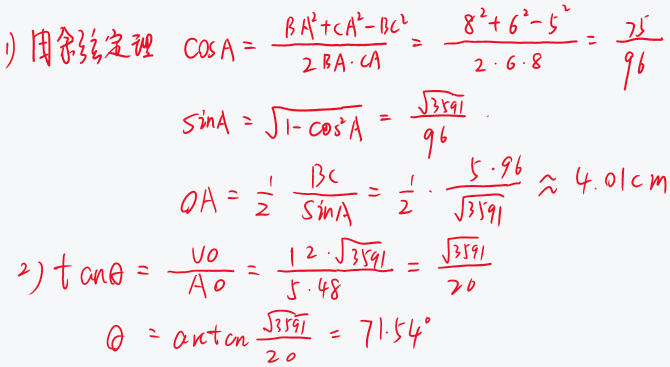 1) 用余弦定理 cosA = \frac{BA²+CA²-BC²}{2BA·CA} = \frac{8²+6²-5²}{2·6·8} = \frac{75}{96}
sinA = \sqrt{1-cos²A} = \frac{\sqrt{3591}}{96}.
OA = \frac{1}{2} \frac{BC}{sinA} = \frac{1}{2} · \frac{5·96}{\sqrt{3591}} ≈ 4.01cm
2) tanθ = \frac{VO}{AO} = \frac{12·\sqrt{3591}}{5·48} = \frac{\sqrt{3591}}{20}
θ = arctan \frac{\sqrt{3591}}{20} = 71.54°